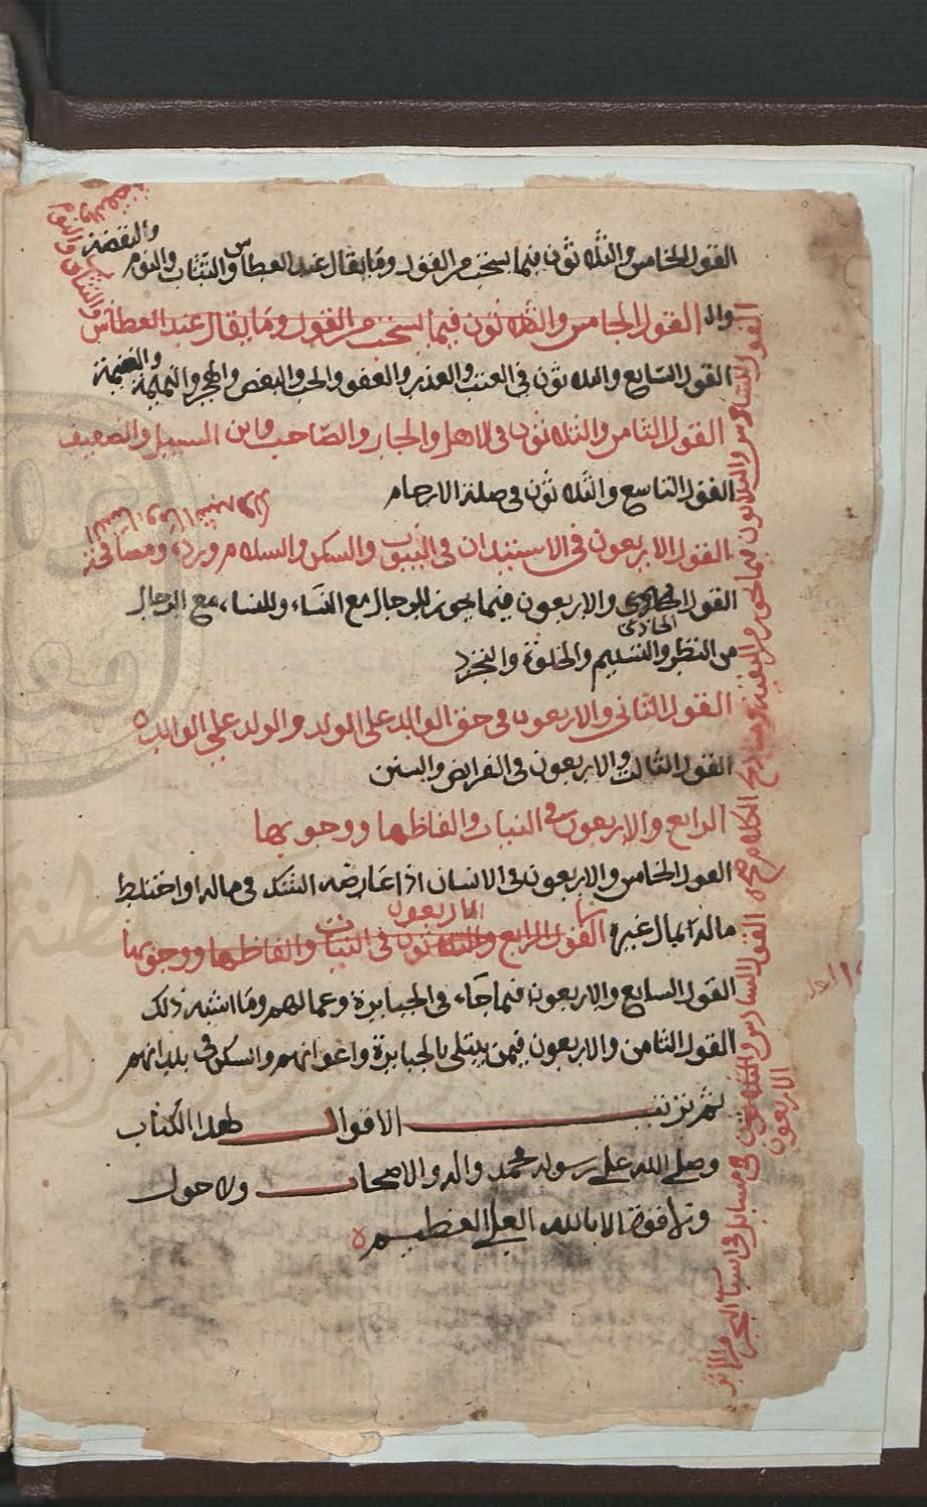 القول الخامس والثلاثون فيما يستحب من القول وما يقال عند العطاس والتثاب والنوم
واليقضة
والتثاب والنوم واليقضة
والـ القول الخامس والثلاثون فيما يستحب من القول وما يقال عند العطاس
القول السابع والثلاثون في العتب والعذر والعفو والحب والبغض والهجر والنميمة
والغنيمة
القول الثامن والثلاثون في الاهل والجار والصاحب وابن السبيل والضعيف
القول التاسع والثلاثون في صلة الارحام
القول الاربعون في الاستيذان في البيوت والسكن والسلام ورده ومصافحة
القول الحادي والاربعون فيما يجوز للرجال مع النساء وللنساء مع الرجال
الحادي
من النظر والتسليم والخلوة والتجرد
القول الثاني والاربعون في حق الوالد على الولد والولد على الوالده
القول الثالث والاربعون في الفرايض والسنن
الرابع والاربعون في النيات والفاظها ووجوبها
القول الخامس والاربعون في الانسان اذا عارضه الشك في ماله او اختلط
ماله بمال غيره القول الرابع والثلاثون في النيات والفاظها ووجوبها
الاربعون
القول السابع والاربعون فيما جاء في الجبابرة وعمالهم وما اشبه ذلك
القول الثامن والاربعون فيمن يبتلى بالجبابرة واعوانهم والسكن في بلدانهم
تم ترتيب الاقوال لهذا الكتاب
وصلى الله على رسوله محمد واله والاصحاب ولا حول
ولا قوة الا بالله العلي العظيم
القول السادس والثلاثون فيما يجوز من التقية ومخارج الكلام صح
القول السادس والثلاثون في مسايل في اسباب البحر والاثر
الاربعون